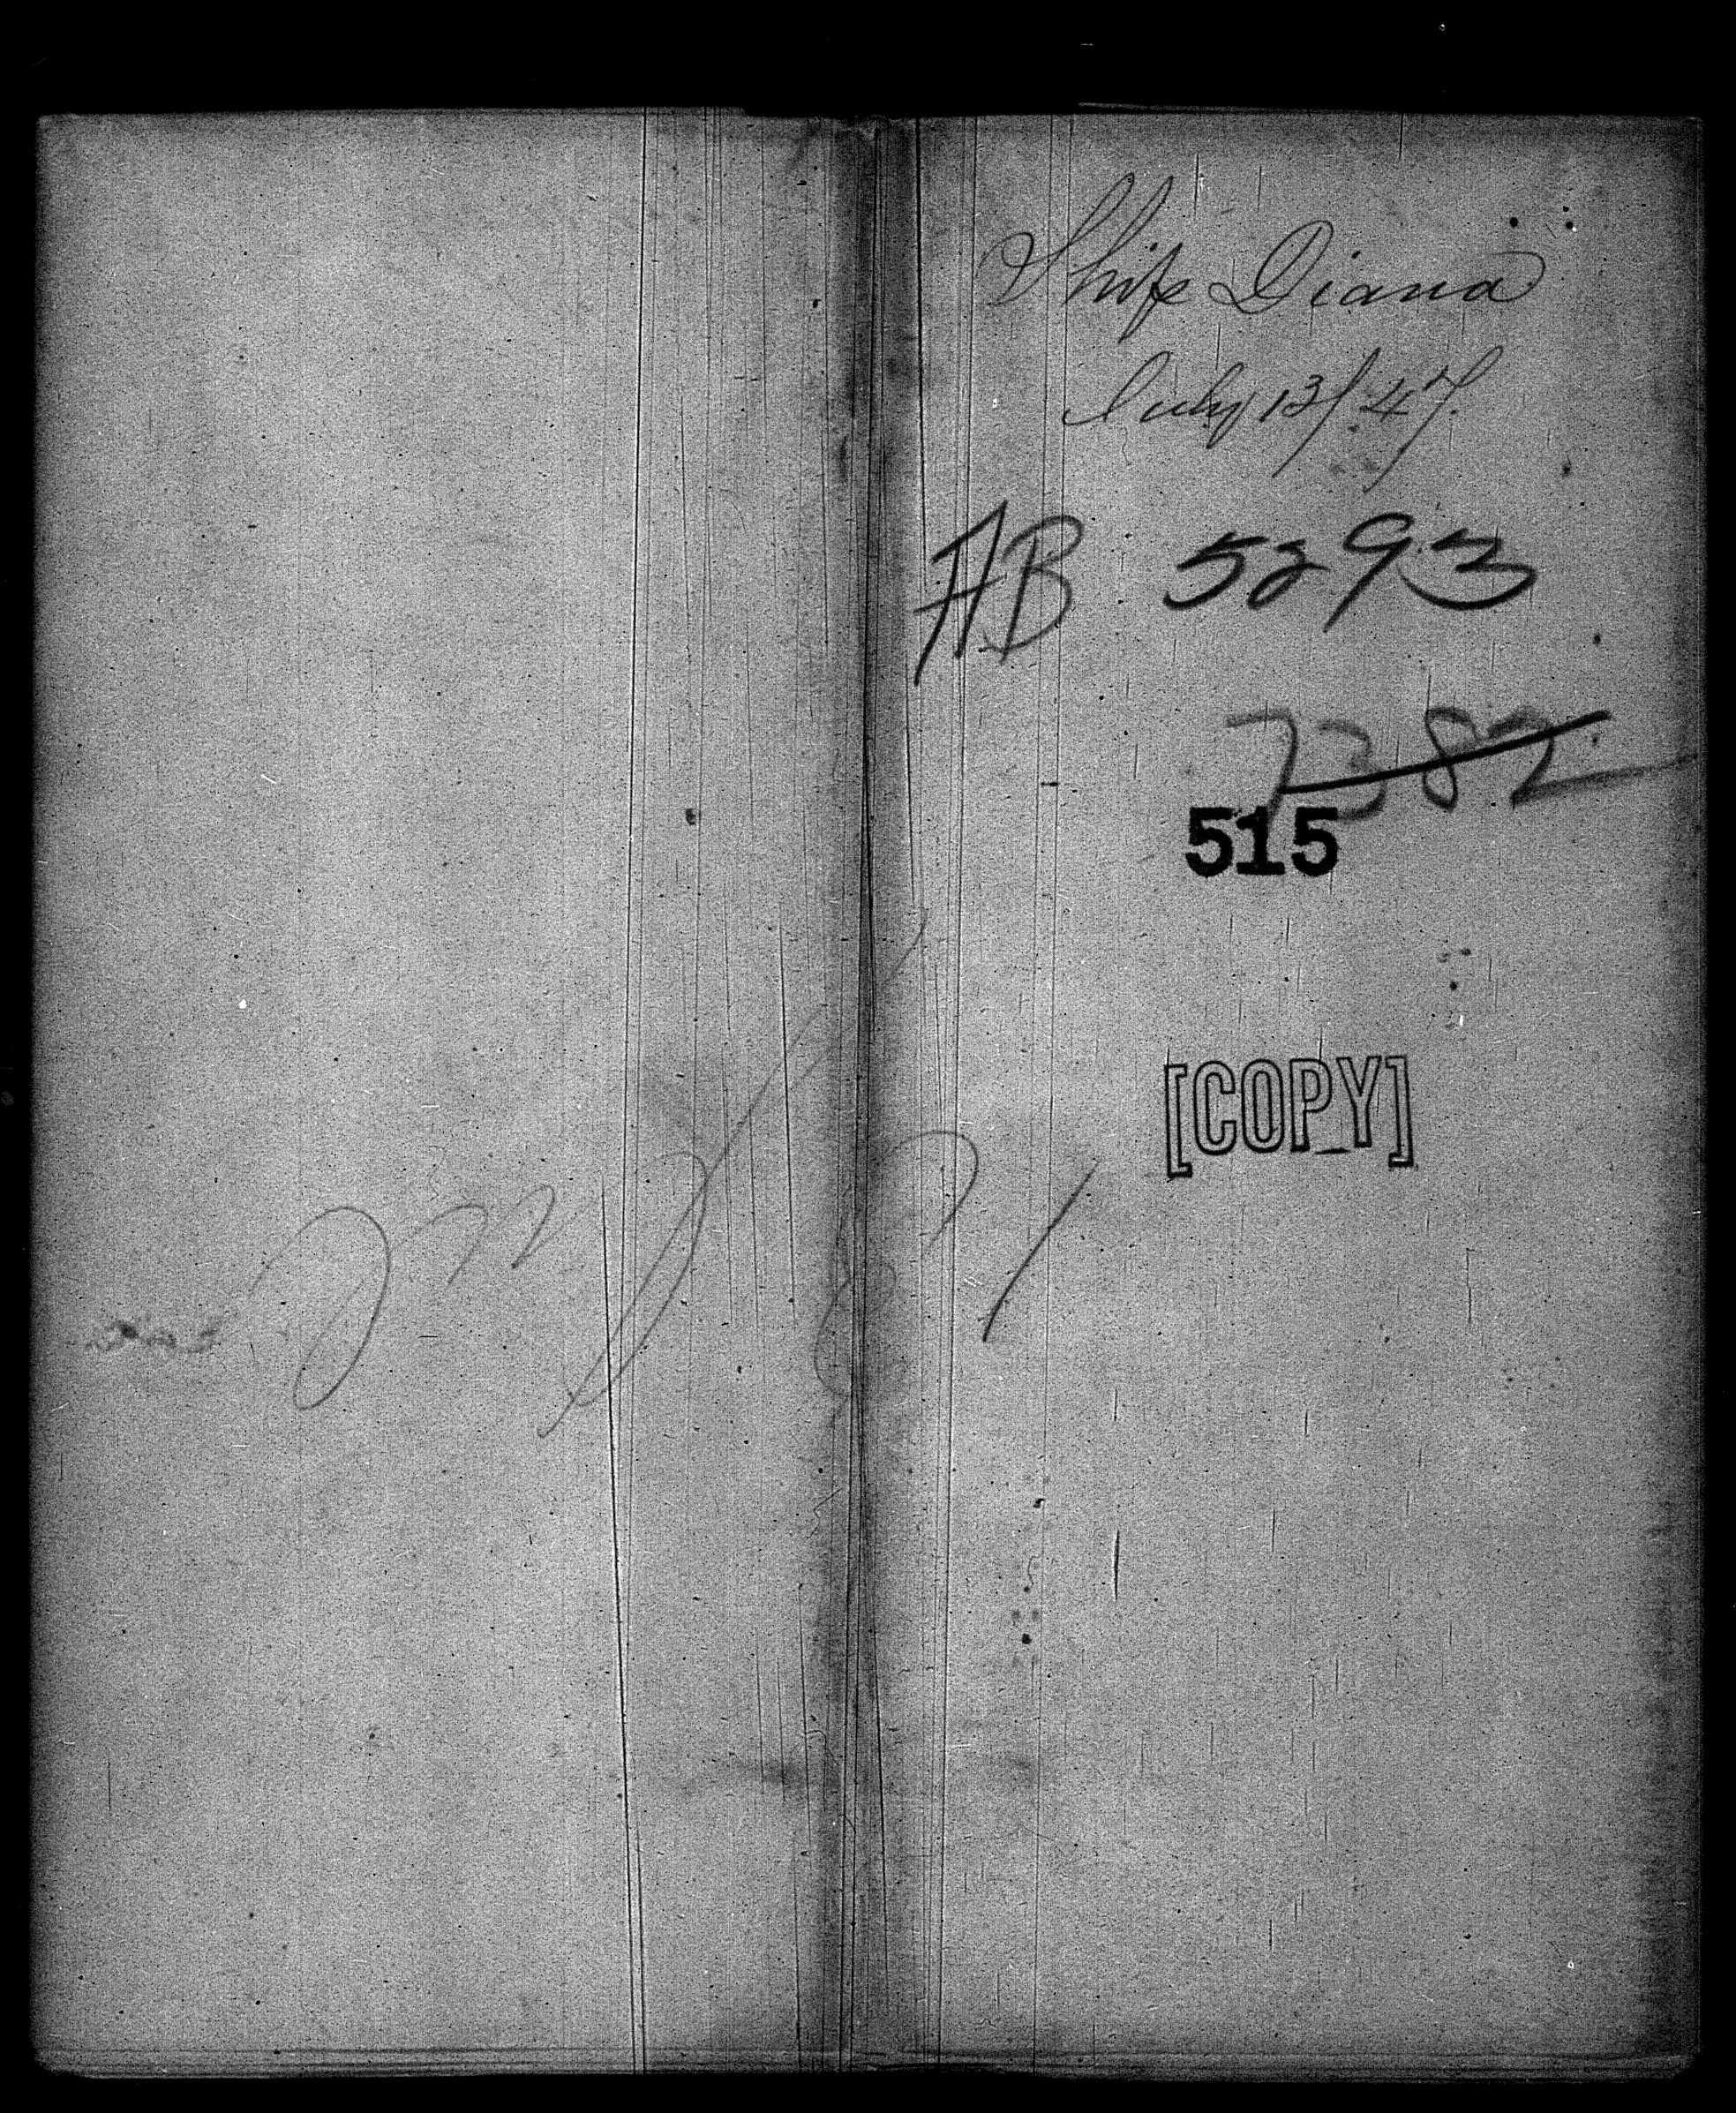 Ship Diana
July 13/47.
AB 5293
7382
515
[COPY]